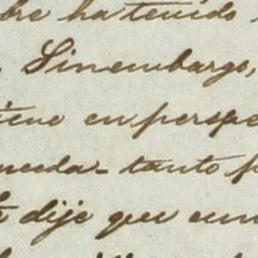 bre ha tenido
Sinembargo,
iene en perspe
neda- tanto p
dije que cun